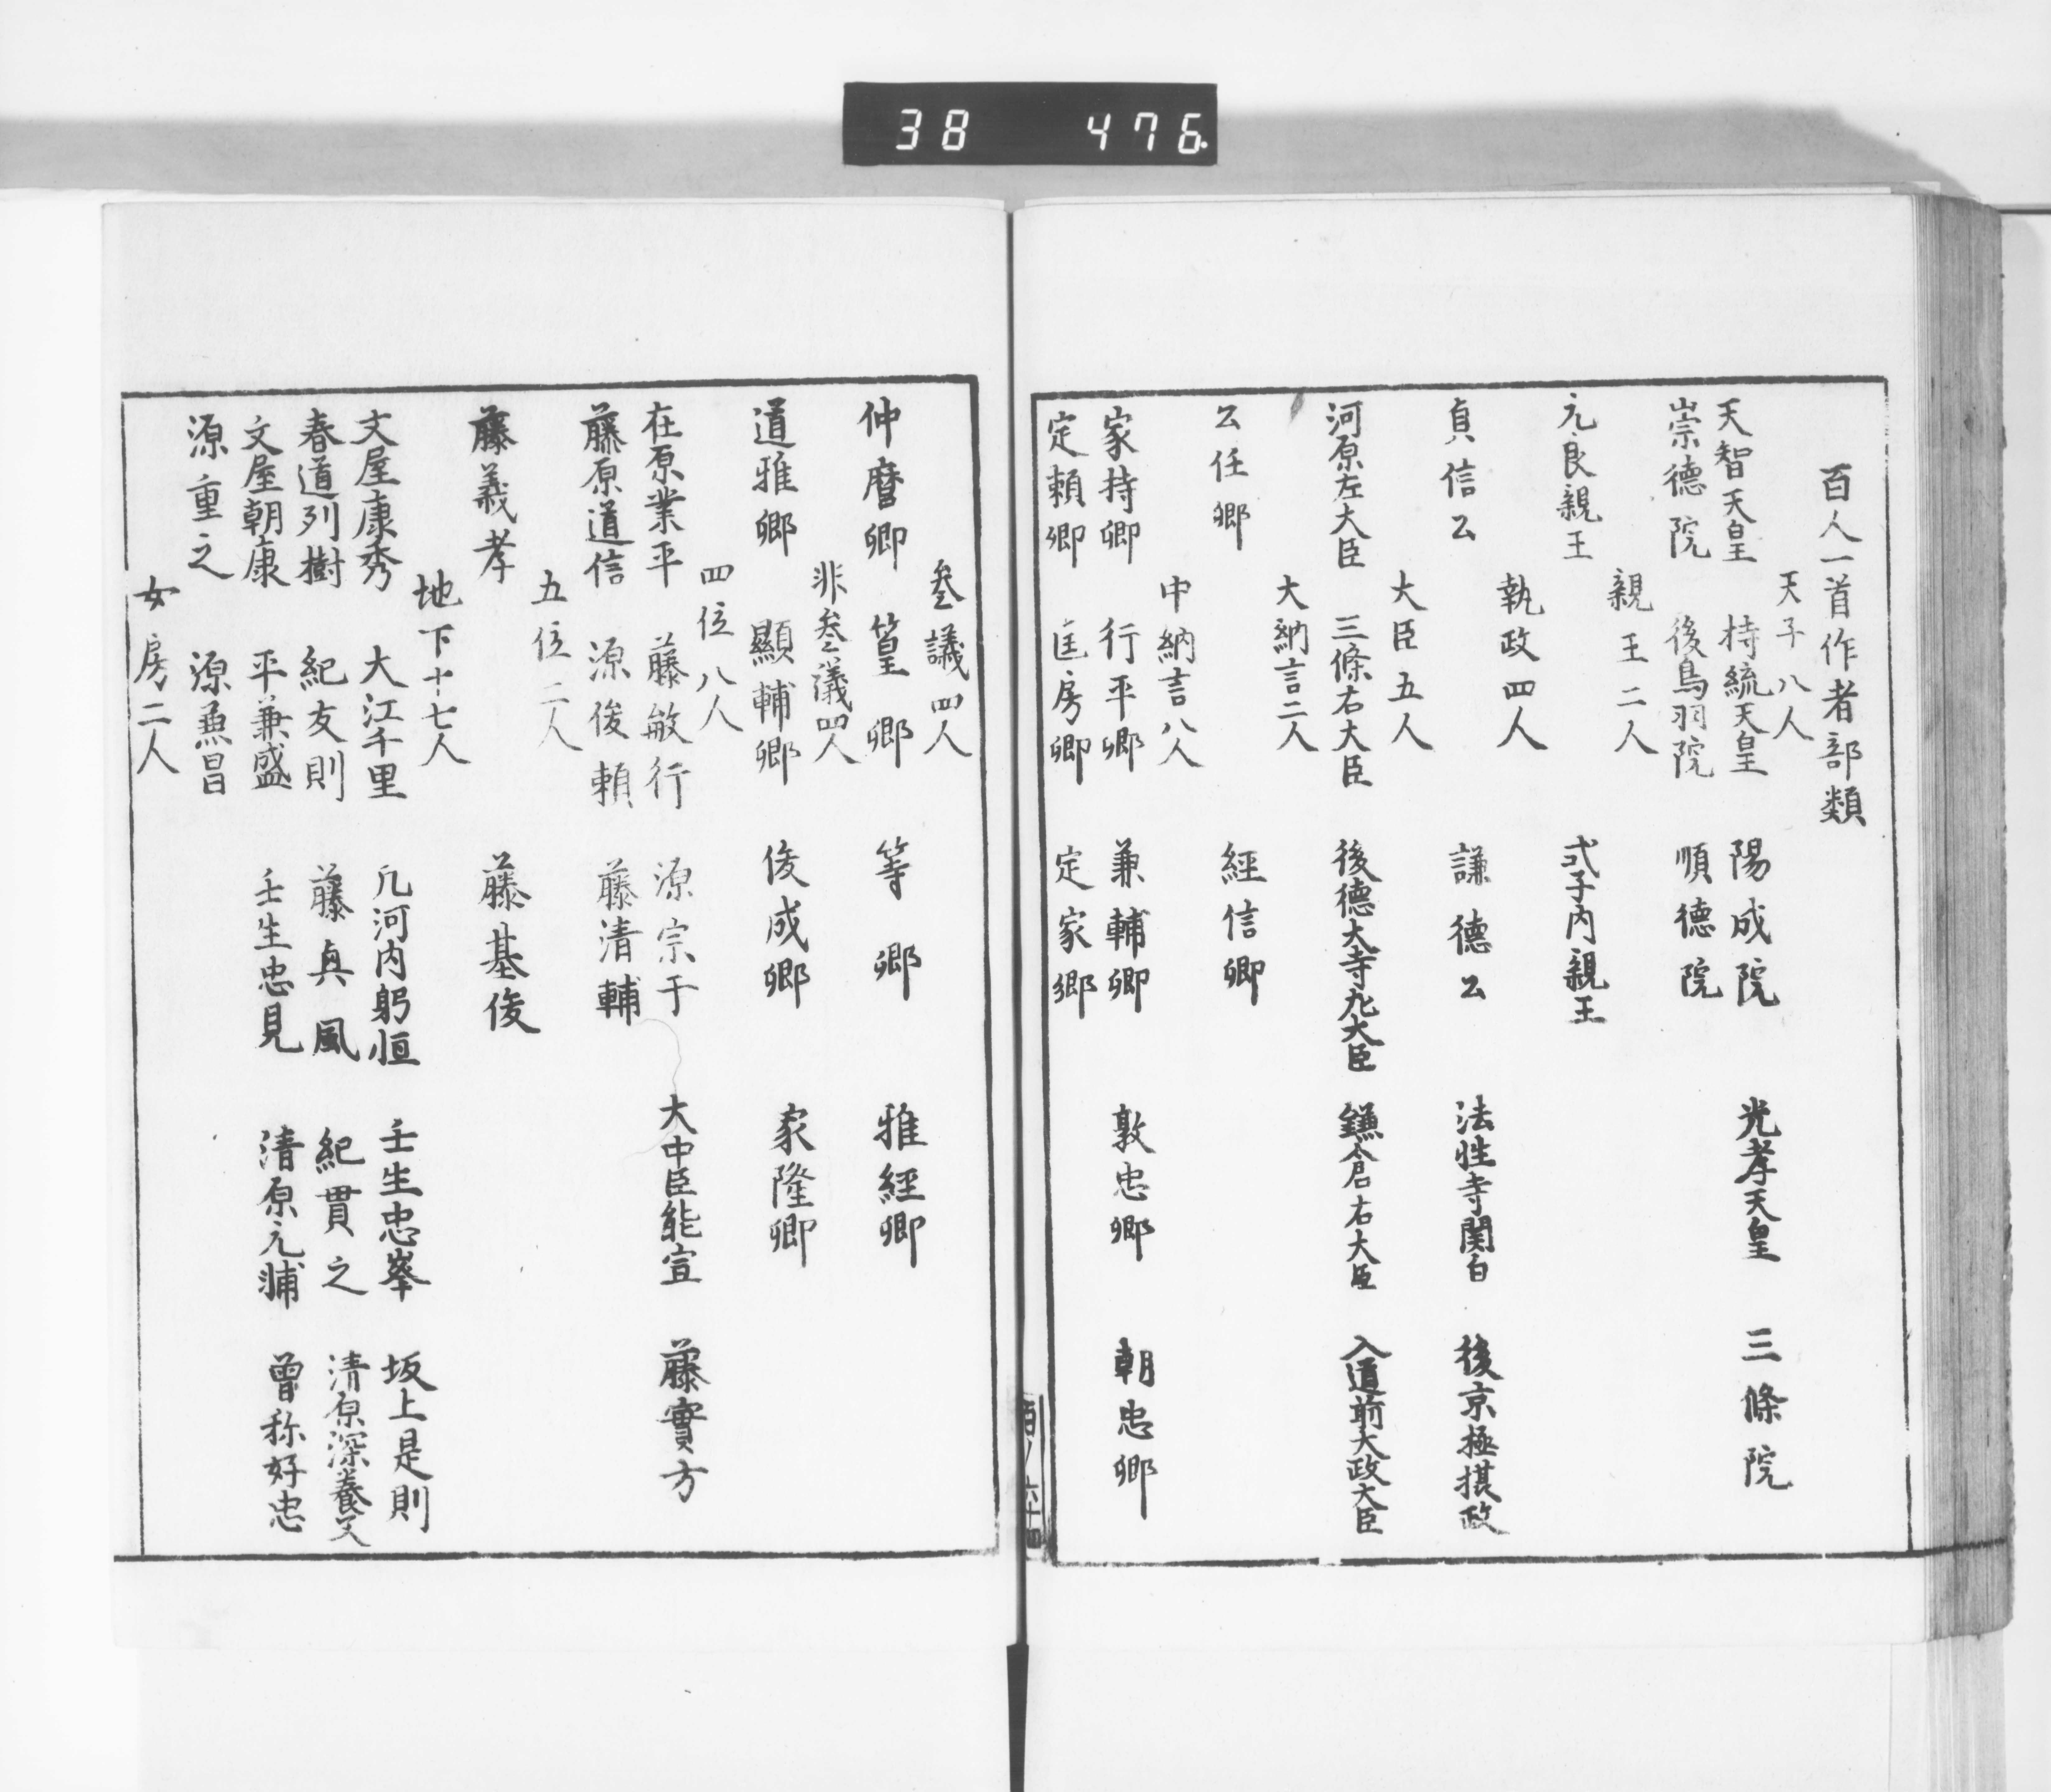 38 476
百人一首作者部類
天子八人
天智天皇 持統天皇 陽成院 光孝天皇 三條院
崇德院 後鳥羽院 順德院
親王二人
元良親王 式子内親王
執政四人
貞信公 謙德公 法性寺関白 後京極摂政
大臣五人
河原左大臣 三條右大臣 後德大寺九大臣 鎌倉右大臣 入道前大政大臣
大納言二人
公任卿 經信卿
中納言八人
家持卿 行平卿 兼輔卿 敦忠卿 朝忠卿
定頼卿 匡房卿 定家卿
叁議四人
仲麿卿 篁卿 等卿 雅經卿
非叁議四人
道雅卿 顯輔卿 俊成卿 家隆卿
四位八人
在原業平 藤敏行 源宗于 大中臣能宣 藤實方
藤原道信 源俊頼 藤清輔
五位二人
藤義孝 藤基俊
地下十七人
文屋康秀 大江千里 凢河内躬恒 壬生忠峯 坂上是則
春道列樹 紀友則 藤真風 紀貫之 清原深養父
文屋朝康 平兼盛 壬生忠見 清原元輔 曽祢好忠
源重之 源兼昌
女房二人